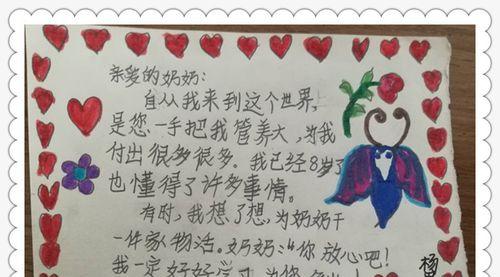 亲爱的奶奶：
自从我来到这个世界，
是您一手把我管养大，为我
付出很多很多。我已经8岁了
也懂得了许多事情。
有时，我想了想，为奶奶干
一件家物活。奶奶：“你放心吧！
我一定好好学习
杨